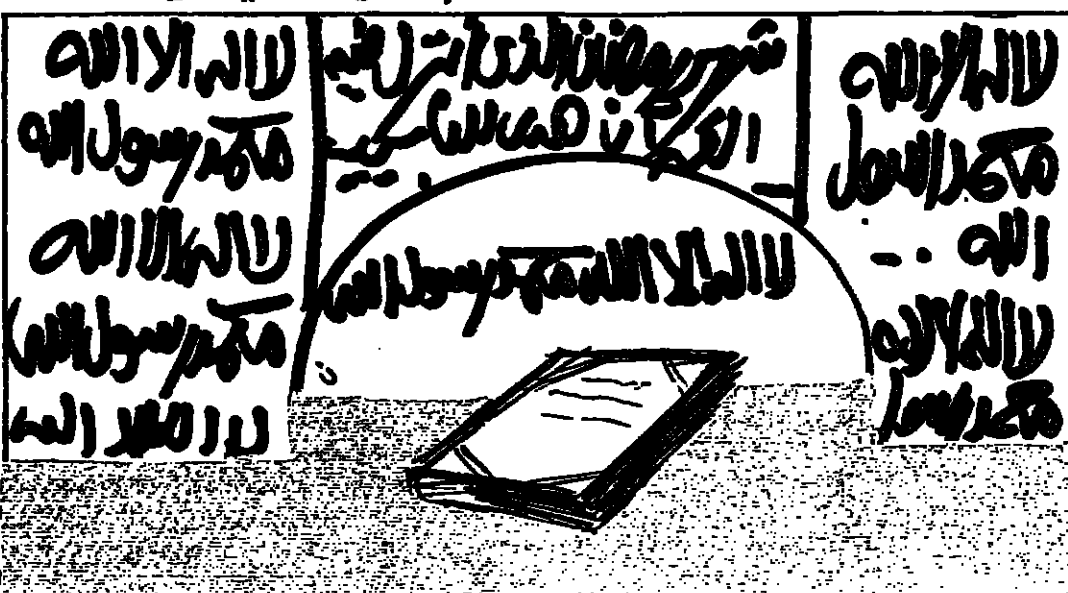 لا اله الا الله
محمد رسول الله
لا اله الا الله
محمد رسول
شهر رمضان الذي انزل فيه
القرآن هدى للناس
لا اله الا الله محمد رسول الله
لا اله الا الله
محمد رسول الله
لا اله الا الله
محمد رسول الله